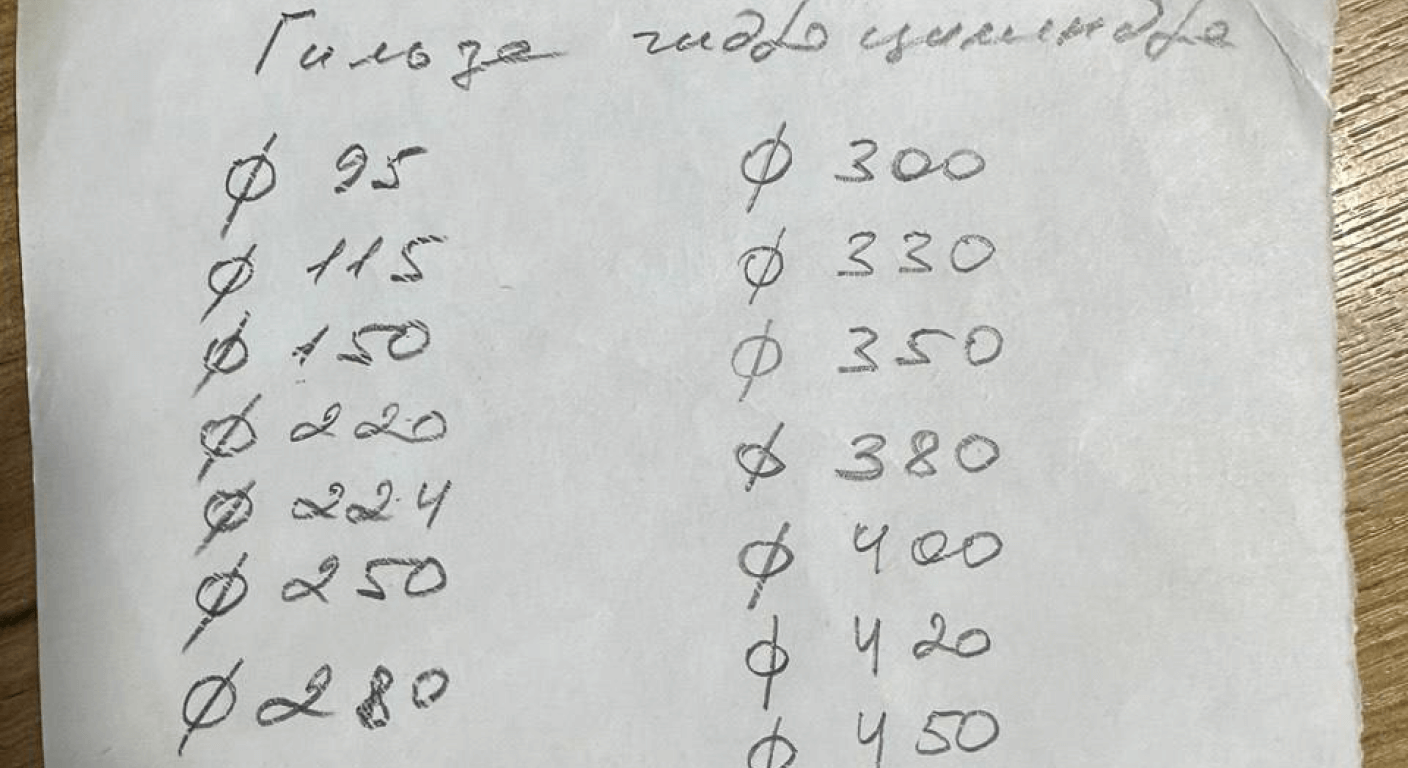 Гильза гидроцилиндра
ф 95
ф 115
ф 150
ф 220
ф 224
ф 250
ф 280
ф 300
ф 330
ф 350
ф 380
ф 400
ф 420
ф 450